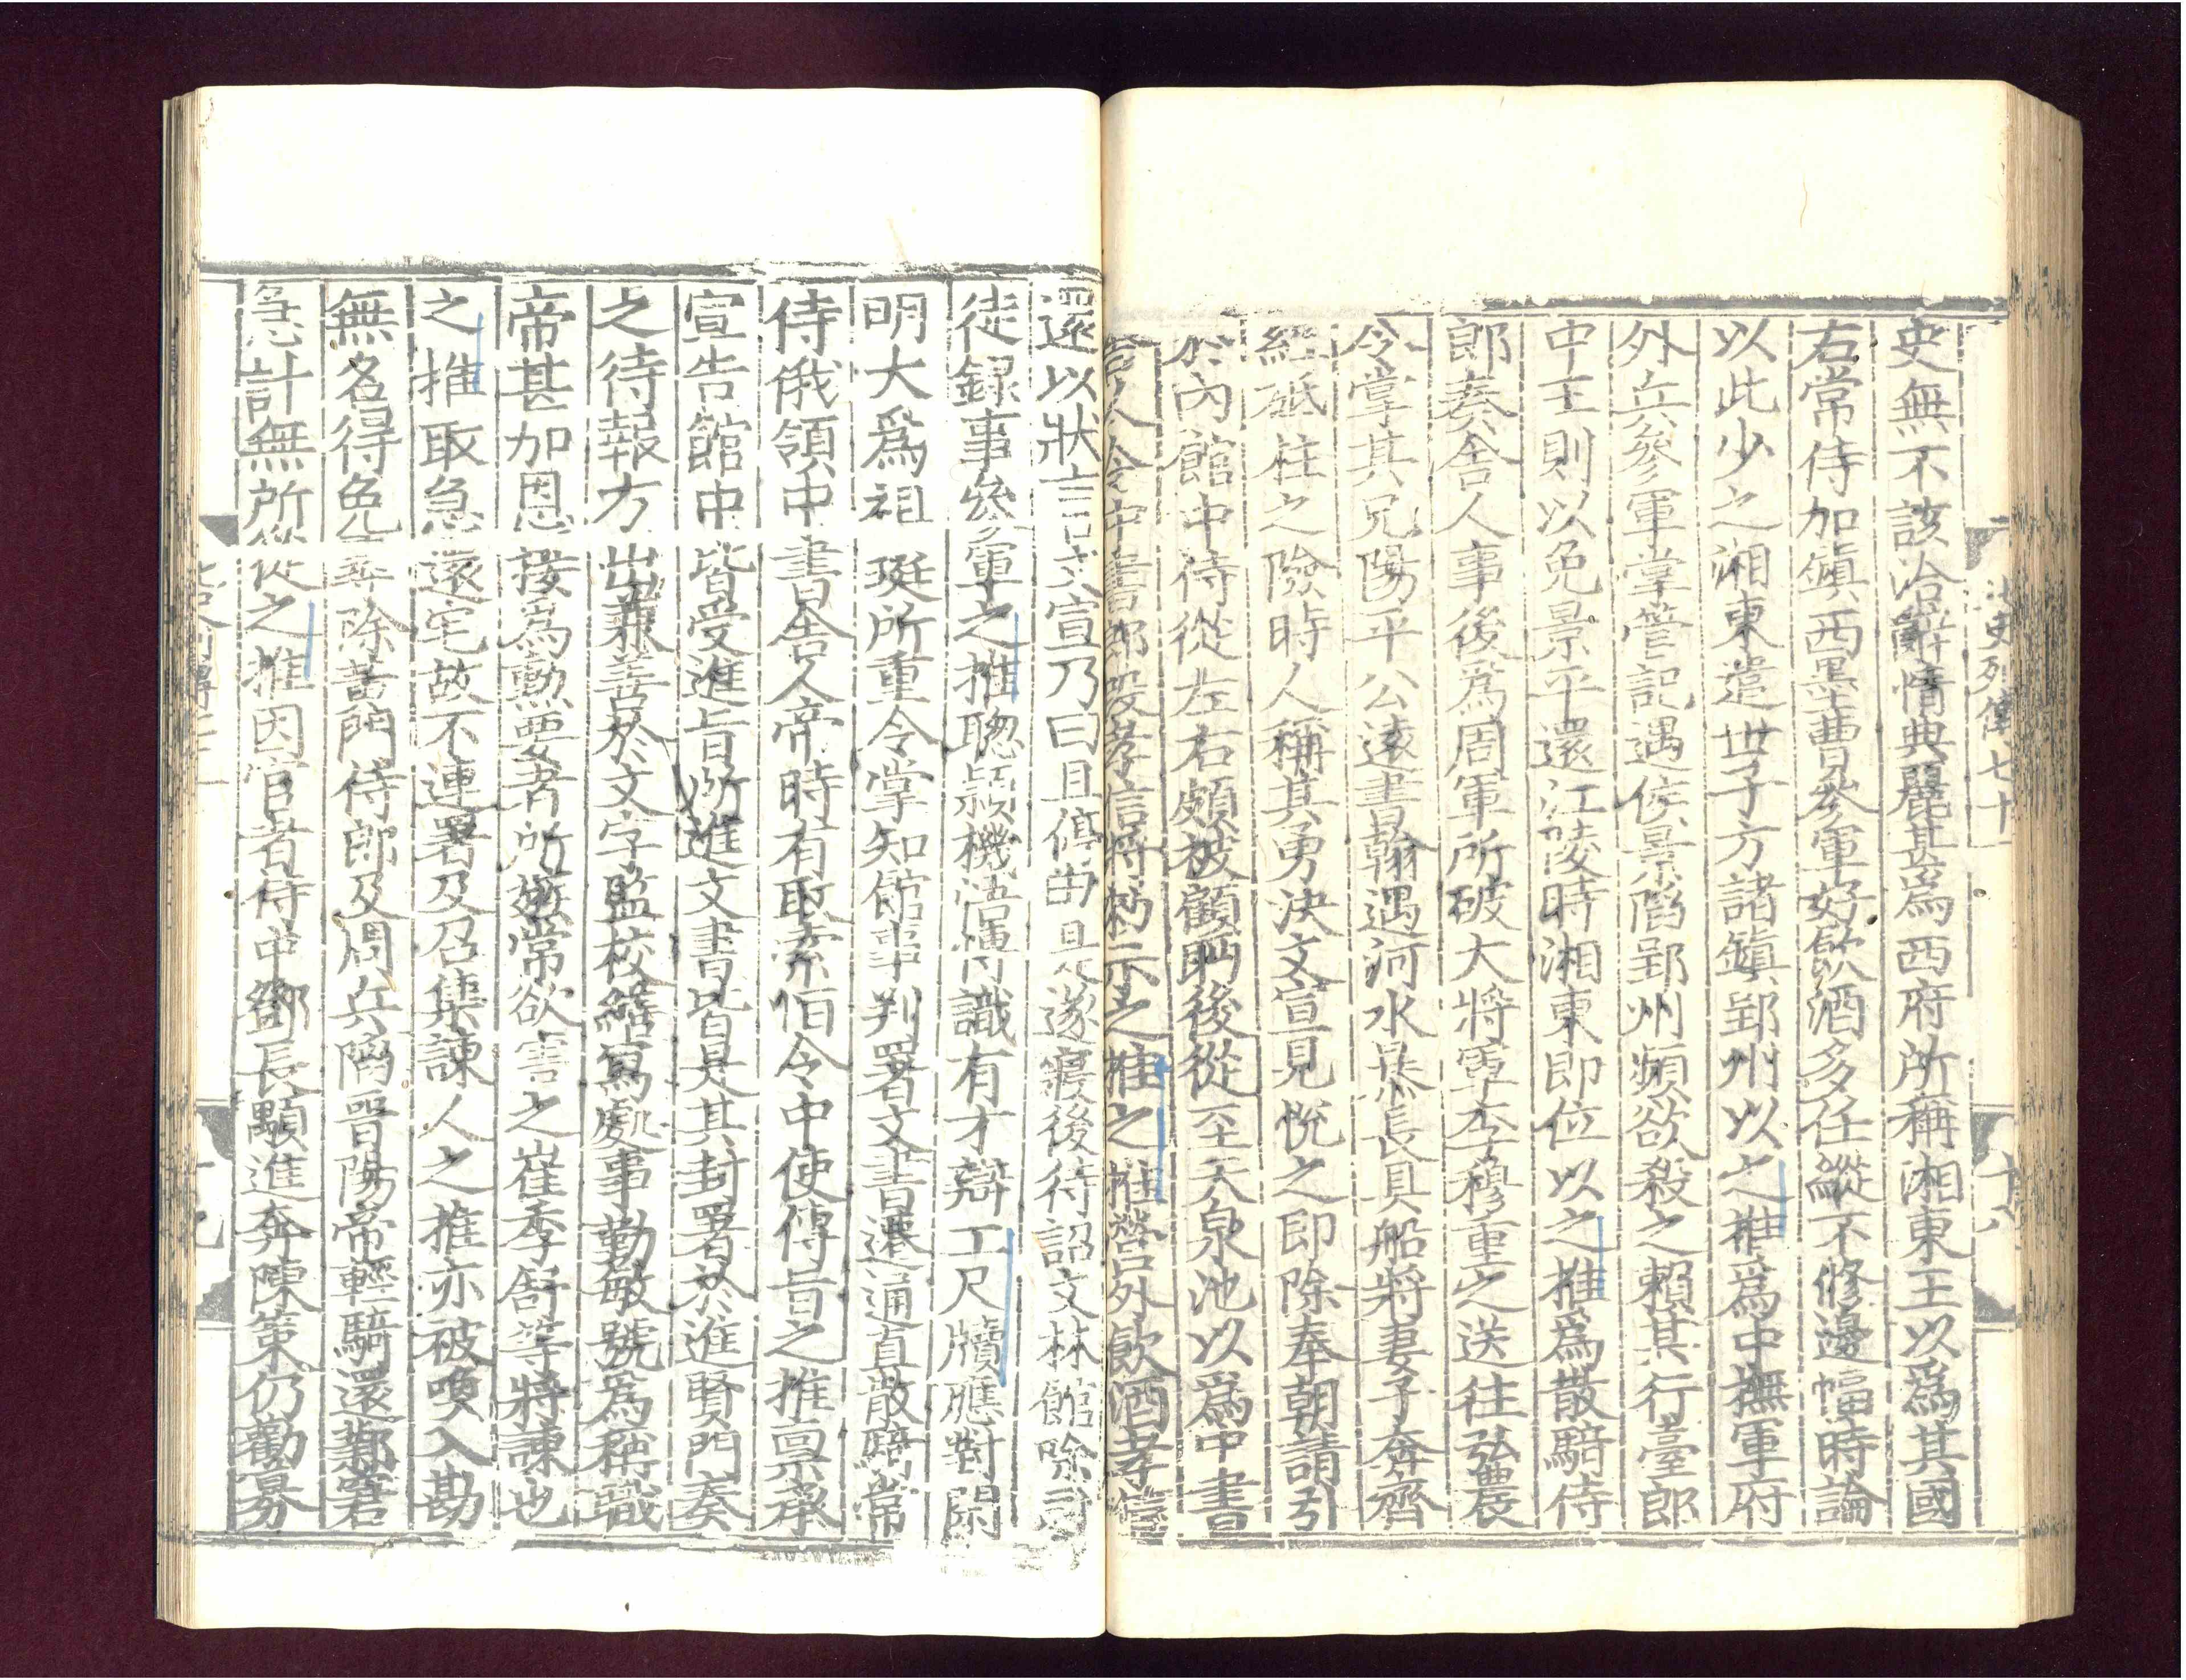 史列傳七十
十八
史無不該洽辭情典麗甚爲西府所稱湘東王以爲其國
右常侍加鎮西墨曹參軍好飲酒多任縱不修邊幅時論
以此少之湘東遣世子方諸鎮郢州以之推爲中撫軍府
外兵參軍掌管記遇侯景陷郢州頻欲殺之賴其行臺郎
中王則以免景平還江陵時湘東即位以之推爲散騎侍
郎奏舍人事後爲周軍所破大將軍李穆重之送往弘農
令掌其兄陽平公遠書翰遇河水暴長具船將妻子奔齊
經砥柱之險時人稱其勇決文宣見悅之即除奉朝請引
於內館中侍從左右頗被顧眄後從至天泉池以爲中書
舍人令中書郎段孝信將勑示之推之推營外飲酒孝信
還以狀言文宣乃曰且停由是遂寢後待詔文林館除司
徒録事參軍之推聰穎機悟博識有才辯工尺牘應對閑
明大爲祖珽所重令掌知館事判署文書遷通直散騎常
侍俄領中書舍人帝時有取索恒令中使傳旨之推禀承
宣告館中皆受進旨所進文書皆是其封署於進賢門奏
之待報方出兼善於文字監校繕寫處事勤敏號爲稱職
帝甚加恩接爲勳要者所嫉常欲害之崔季舒等將諫也
之推取急還宅故不連署及召集諫人之推亦被喚入勘
無名得免尋除黃門侍郎及周兵陷晉陽帝輕騎還鄴窘
急計無所從之推因宦者侍中鄧長顒進奔陳策仍勸募